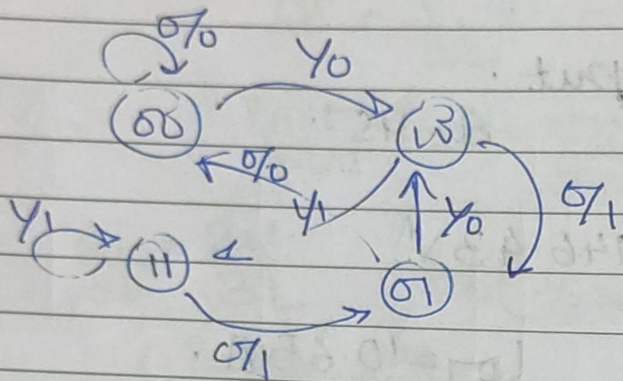 0/0
1/0
00
10
0/0
1/1
0/1
1/0
1/1
11
01
0/1